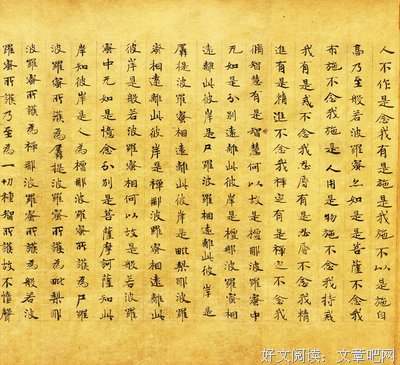 人不作是念我有是施是我施不以是施自
高乃至般若波羅蜜亦如是是菩薩不念我
布施不念我施是人用是物施不念我持戒
我有是戒不念我忍辱有是忍辱不念我精
進有是精進不念我禪定有是禪定不念我
脩智慧有是智慧何以故是檀那波羅蜜中
无如是分別遠離此彼岸是檀那波羅蜜相
遠離此彼岸是尸羅波羅蜜相遠離此彼岸是
羼提波羅蜜相遠離此彼岸是毗梨耶波羅
蜜相遠離此彼岸是禪那波羅蜜相遠離此
彼岸是般若波羅蜜相何以故是般若波羅
蜜中无如是憶念分別是菩薩摩訶薩知此
岸知彼岸是人為檀那波羅蜜所護為尸羅
波羅蜜所護為羼提波羅蜜所護為毗梨耶
波羅蜜所護為禪那波羅蜜所護為般若波
羅蜜所護乃至為一切種智所護故不墮聲
好文阅读：文章吧网